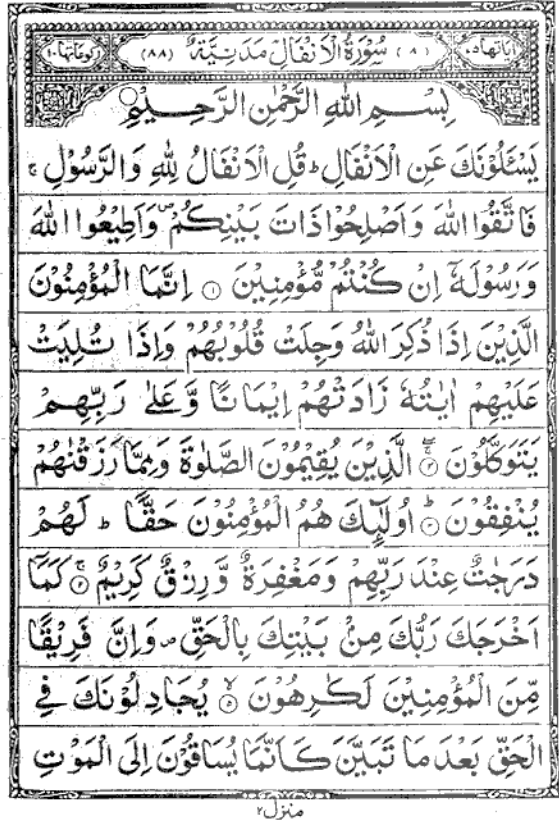 اٰیَاتُهَا ۷۵ (۸) سُوْرَةُ الْاَنْفَالِ مَدَنِیَّةٌ (۸۸) رُكُوْعَاتُهَا ۱۰
بِسْمِ اللّٰهِ الرَّحْمٰنِ الرَّحِیْمِ ○
یَسْئَلُوْنَكَ عَنِ الْاَنْفَالِ ؕ قُلِ الْاَنْفَالُ لِلّٰهِ وَالرَّسُوْلِ ۚ
فَاتَّقُوا اللّٰهَ وَاَصْلِحُوْا ذَاتَ بَیْنِكُمْ ۪ وَاَطِیْعُوا اللّٰهَ
وَرَسُوْلَهٗۤ اِنْ كُنْتُمْ مُّؤْمِنِیْنَ ۝۱ اِنَّمَا الْمُؤْمِنُوْنَ
الَّذِیْنَ اِذَا ذُكِرَ اللّٰهُ وَجِلَتْ قُلُوْبُهُمْ وَاِذَا تُلِیَتْ
عَلَیْهِمْ اٰیٰتُهٗ زَادَتْهُمْ اِیْمَانًا وَّعَلٰی رَبِّهِمْ
یَتَوَكَّلُوْنَ ۝۲ۚۖ الَّذِیْنَ یُقِیْمُوْنَ الصَّلٰوةَ وَمِمَّا رَزَقْنٰهُمْ
یُنْفِقُوْنَ ۝۳ؕ اُولٰٓئِكَ هُمُ الْمُؤْمِنُوْنَ حَقًّا ؕ لَهُمْ
دَرَجٰتٌ عِنْدَ رَبِّهِمْ وَمَغْفِرَةٌ وَّرِزْقٌ كَرِیْمٌ ۝۴ۚ كَمَاۤ
اَخْرَجَكَ رَبُّكَ مِنْۢ بَیْتِكَ بِالْحَقِّ ۪ وَاِنَّ فَرِیْقًا
مِّنَ الْمُؤْمِنِیْنَ لَكٰرِهُوْنَ ۝۵ۙ یُجَادِلُوْنَكَ فِی
الْحَقِّ بَعْدَ مَا تَبَیَّنَ كَاَنَّمَا یُسَاقُوْنَ اِلَی الْمَوْتِ
منزل ۲